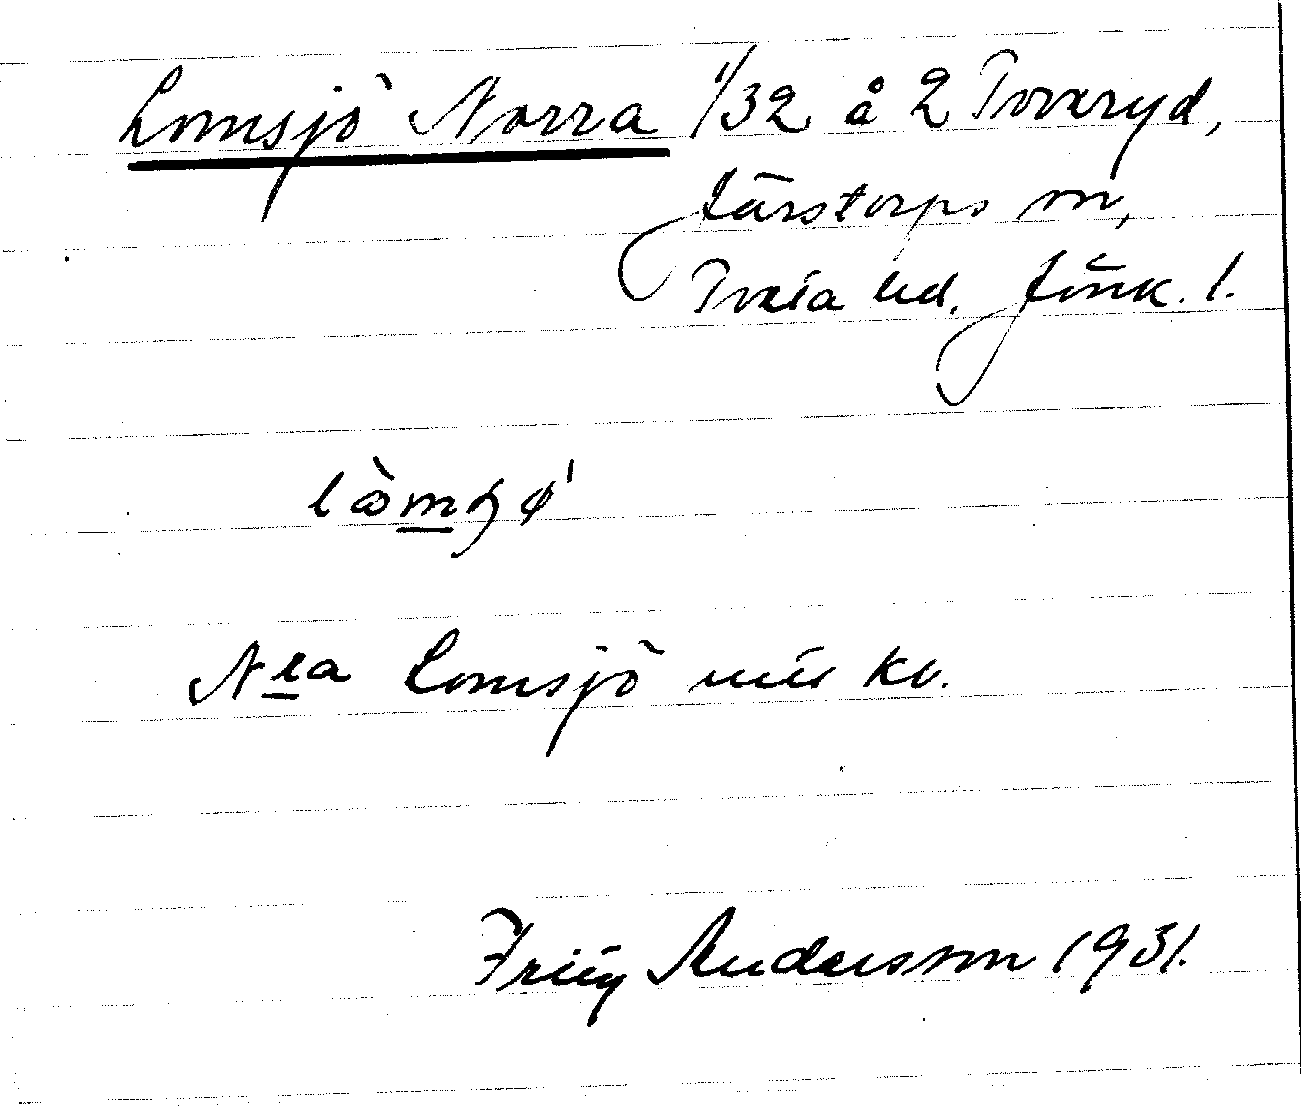 Lomsjö Norra 1/32 å 2 Tovaryd,
Järstorps sn,
Tveta hd. Jönk. l.
Nra Lomsjö
Fritz Andersson 1931.